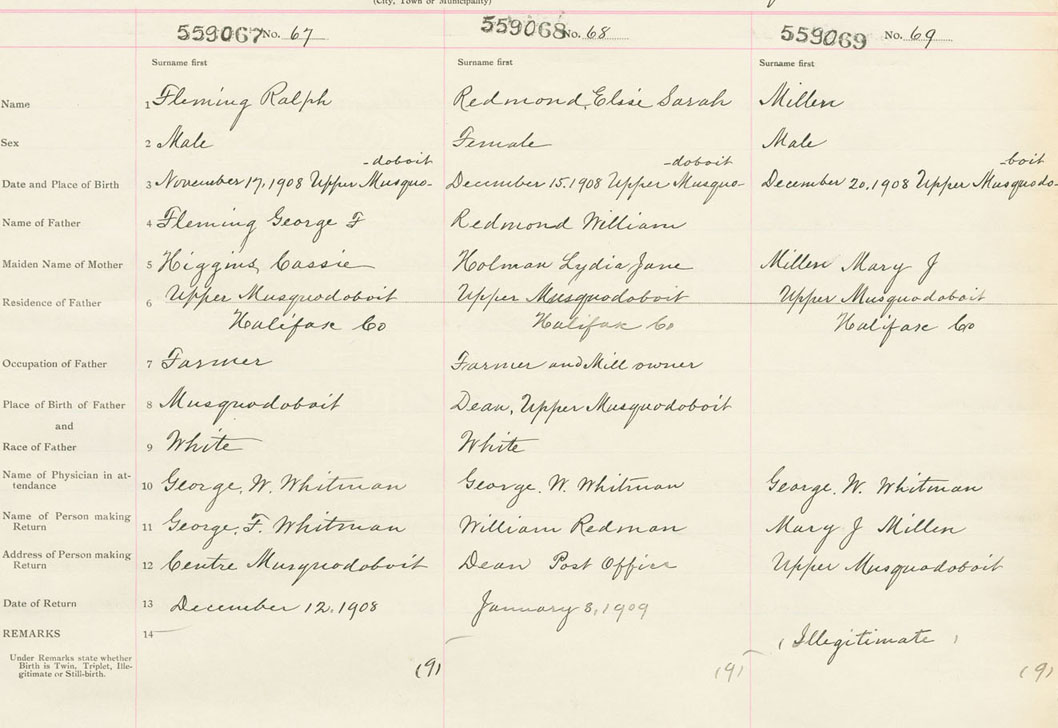 (City, Town or Municipality)
559067 No. 67 559068 No. 68 559069 No. 69
Surname first Surname first Surname first
Name 1 Fleming Ralph Redmond, Elsie Sarah Millen
Sex 2 Male Female Male
-doboit -doboit -boit
Date and Place of Birth 3 November 17, 1908 Upper Musquo- December 15. 1908 Upper Musquo- December 20, 1908 Upper Musquodo-
Name of Father 4 Fleming George F Redmond William
Maiden Name of Mother 5 Higgins, Cassie Holman Lydia Jane Millen Mary J
Residence of Father 6 Upper Musquodoboit Upper Musquodoboit Upper Musquodoboit
Halifax Co Halifax Co Halifax Co
Occupation of Father 7 Farmer Farmer and Mill owner
Place of Birth of Father 8 Musquodoboit Dean, Upper Musquodoboit
and
Race of Father 9 White White
Name of Physician in at-
tendance 10 George. W. Whitman George. W. Whitman George. W. Whitman
Name of Person making
Return 11 George. F. Whitman William Redman Mary J Millen
Address of Person making
Return 12 Centre Musquodoboit Dean Post Office Upper Musquodoboit
Date of Return 13 December 12, 1908 January 8, 1909
REMARKS 14 (Illegitimate)
Under Remarks state whether
Birth is Twin, Triplet, Ille-
gitimate or Still-birth.
(9) (9) (9)